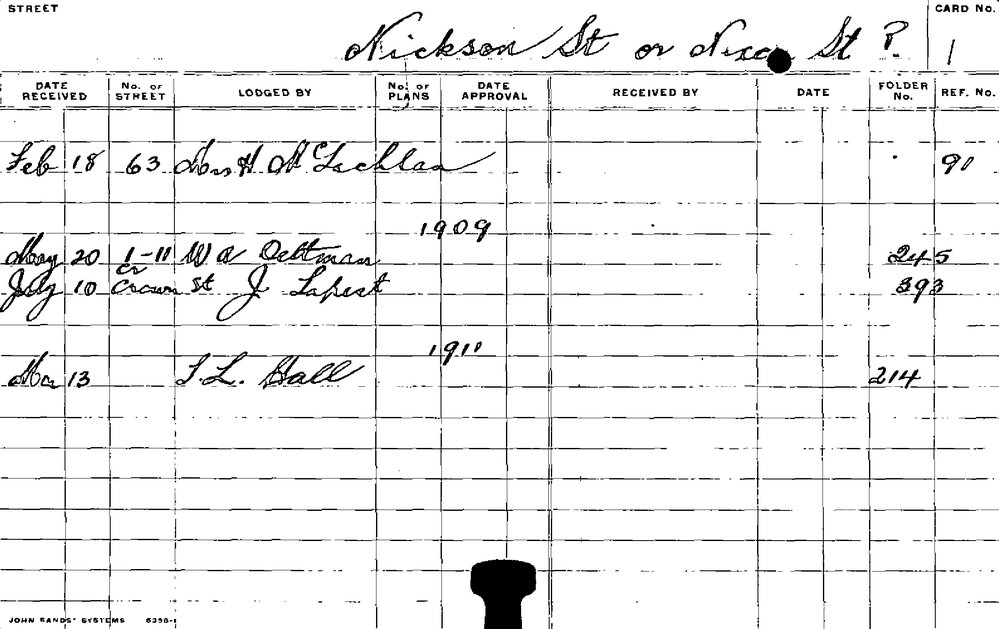 STREET
CARD No.
Nickson St or St P.
1
DATE RECEIVED No. OF STREET LODGED BY No. OF PLANS DATE APPROVAL RECEIVED BY DATE FOLDER No. REF. No.
Feb 18 63 Mrs H McLachlan 91
1909
May 20 1-11 W A Oettman 245
July 10 cr Crown St J 393
1911
Mar 13 Hall 214
JOHN SANDS' SYSTEMS